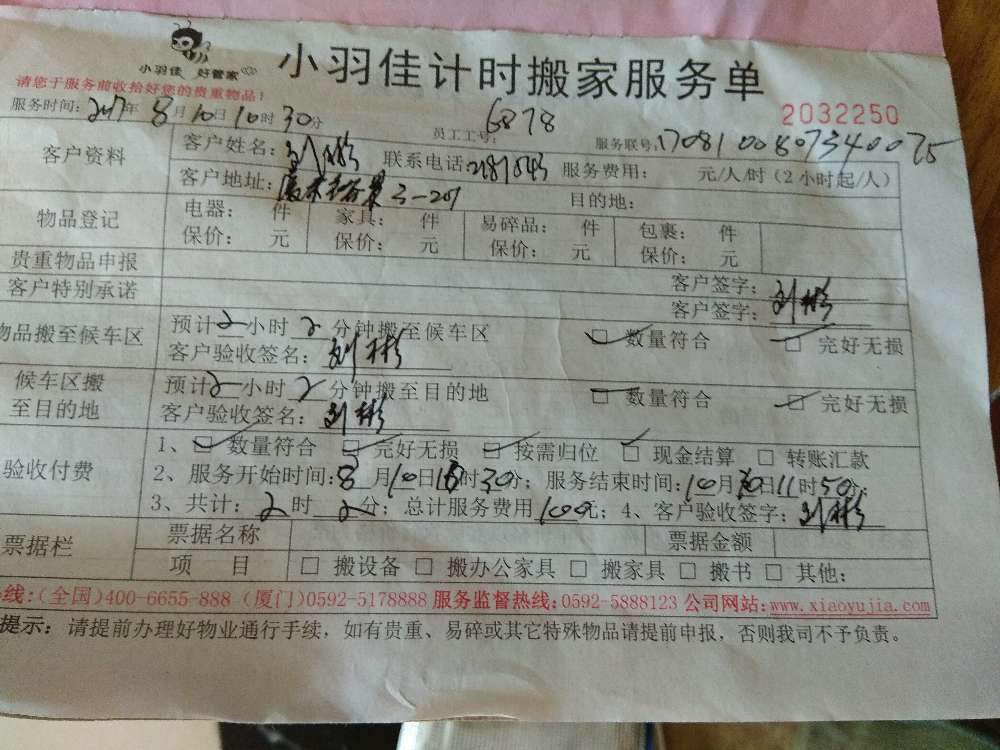 小羽佳 好管家
小羽佳计时搬家服务单
请您于服务前收拾好您的贵重物品！
2032250
服务时间：2017年8月10日10时30分 员工工号：6878 服务联号：
客户资料 客户姓名：刘彬 联系电话： 服务费用： 元/人/时（2小时起/人）
客户地址： 3-201 目的地：
物品登记 电器： 件 家具： 件 易碎品： 件 包裹： 件
保价： 元 保价： 元 保价： 元 保价： 元
贵重物品申报 客户签字：刘彬
客户特别承诺 客户签字：
物品搬至候车区 预计2小时2分钟搬至候车区 □ 数量符合 □ 完好无损
客户验收签名：刘彬
候车区搬至目的地 预计2小时2分钟搬至目的地 □ 数量符合 □ 完好无损
客户验收签名：刘彬
验收付费 1、□ 数量符合 □ 完好无损 □ 按需归位 □ 现金结算 □ 转账汇款
2、服务开始时间：8月10日 时30分；服务结束时间：10月 日11时50分；
3、共计：2时2分；总计服务费用100元；4、客户验收签字：刘彬
票据栏 票据名称 票据金额
项 目 □ 搬设备 □ 搬办公家具 □ 搬家具 □ 搬书 □ 其他：
线：（全国）400-6655-888（厦门）0592-5178888 服务监督热线：0592-5888123 公司网站：www.xiaoyujia.com
提示：请提前办理好物业通行手续，如有贵重、易碎或其它特殊物品请提前申报，否则我司不予负责。